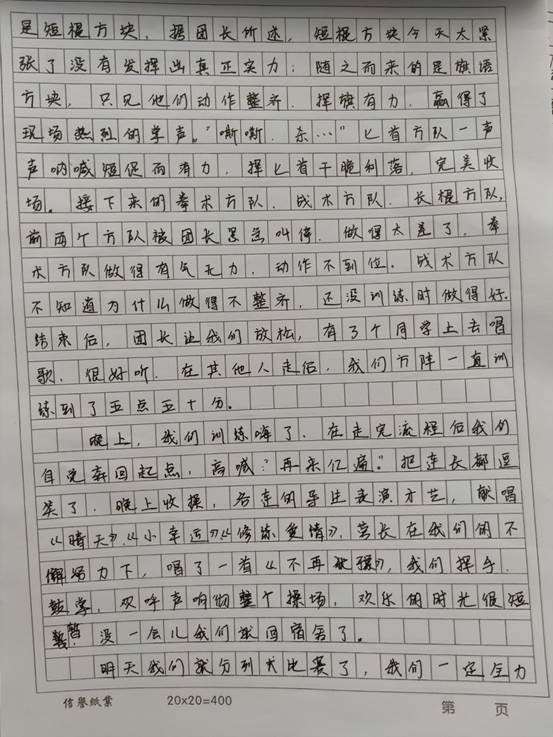 是短棍方块，据团长所述，短棍方块今天太紧
张了没有发挥出真正实力；随之而来的是旗语
方块，只见他们动作整齐，挥旗有力，赢得了
现场热烈的掌声。"嘶嘶，杀…"匕首方队一声
声呐喊短促而有力，挥匕首干脆利落，完美收
场。接下来的拳术方队，战术方队，长棍方队，
前两个方队被团长紧急叫停，做得太差了，拳
术方队做得有气无力，动作不到位。战术方队
不知道为什么做得不整齐，还没训练时做得好。
结束后，团长让我们放松，有3个同学上去唱
歌，很好听，在其他人走后，我们方阵一直训
练到了五点五十分。
晚上，我们训练嗨了，在走完流程后我们
自觉奔回起点，高喊："再来亿遍。"把连长都逗
笑了，晚上收操，各连的学生表演才艺，献唱
《晴天》《小幸运》《修炼爱情》，营长在我们的不
懈努力下，唱了一首《不再犹强》，我们挥手，
鼓掌，欢呼声响彻整个操场，欢乐的时光很短
暂，没一会儿我们就回宿舍了。
明天我们就分列式比赛了，我们一定全力
信誉纸业 20×20=400 第 页